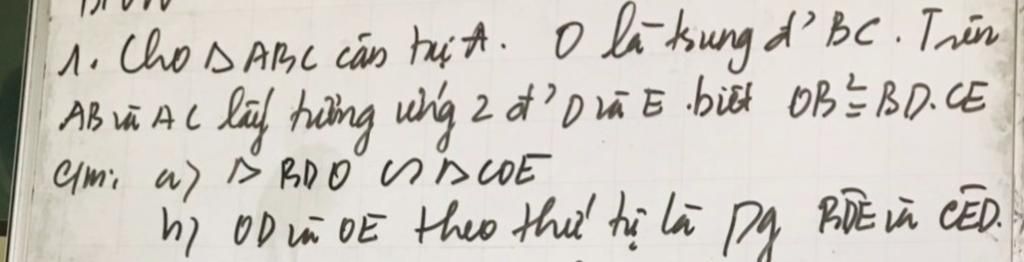 1. Cho Δ ABC cân tại A. O là trung đ' BC. Trên
AB và AC lấy tương ứng 2 đ' D và E. biết OB² = BD.CE
Cm: a) Δ BDO ∽ Δ COE
b) OD và OE theo thứ tự là pg BDE và CED.